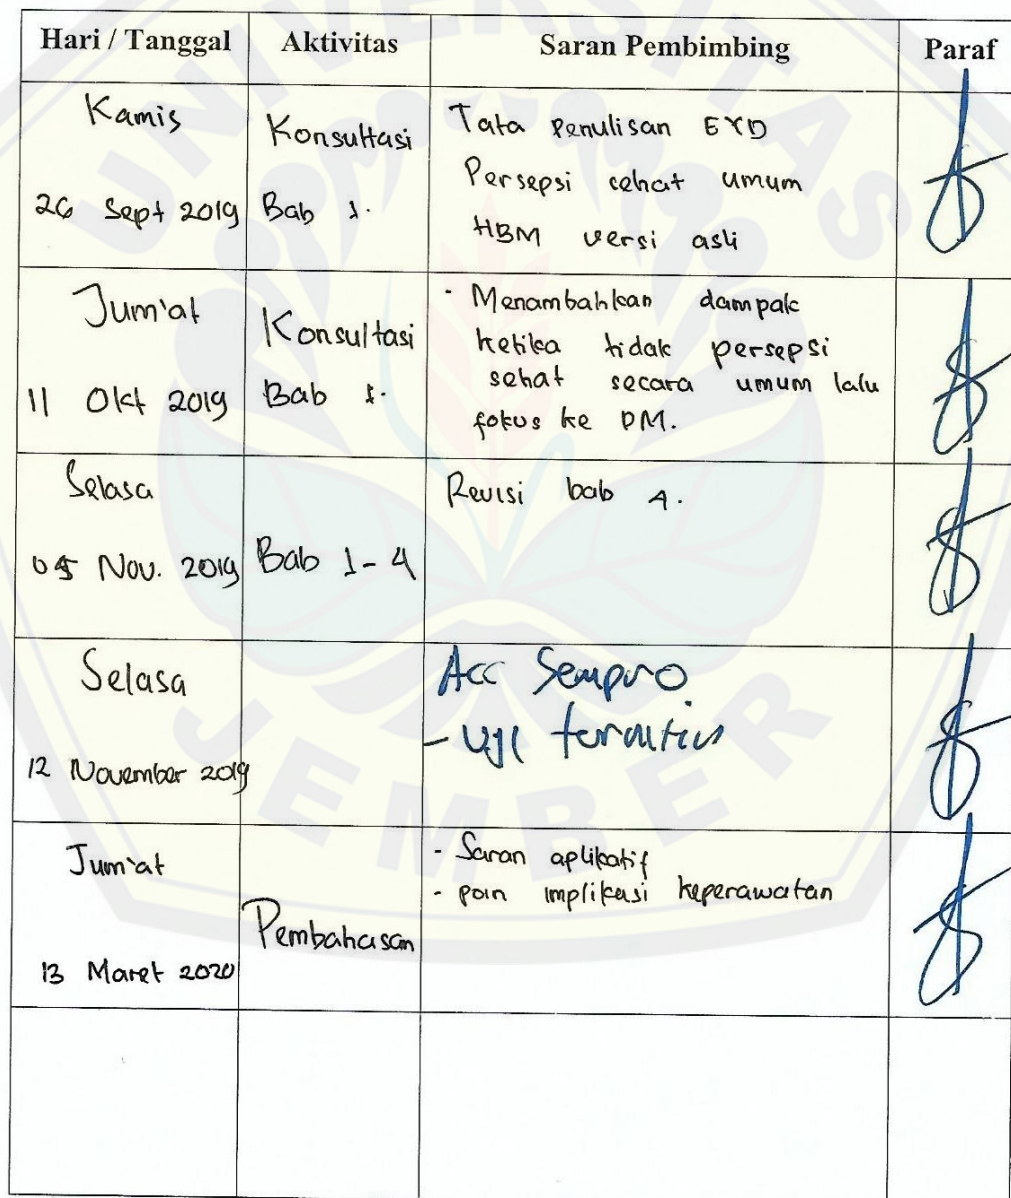 UNIVERSITAS
JEMBER
Hari / Tanggal Aktivitas Saran Pembimbing Paraf
Kamis
26 Sept 2019
Konsultasi
Bab 1.
Tata Penulisan EYD
Persepsi sehat umum
HBM versi asli
Jum'at
11 Okt 2019
Konsultasi
Bab 1.
- Menambahkan dampak
ketika tidak persepsi
sehat secara umum lalu
fokus ke DM.
Selasa
05 Nov. 2019
Bab 1-4
Revisi bab 4.
Selasa
12 November 2019
Acc Sempro
- Uji
Jum'at
13 Maret 2020
Pembahasan
- Saran aplikatif
- poin implikasi keperawatan